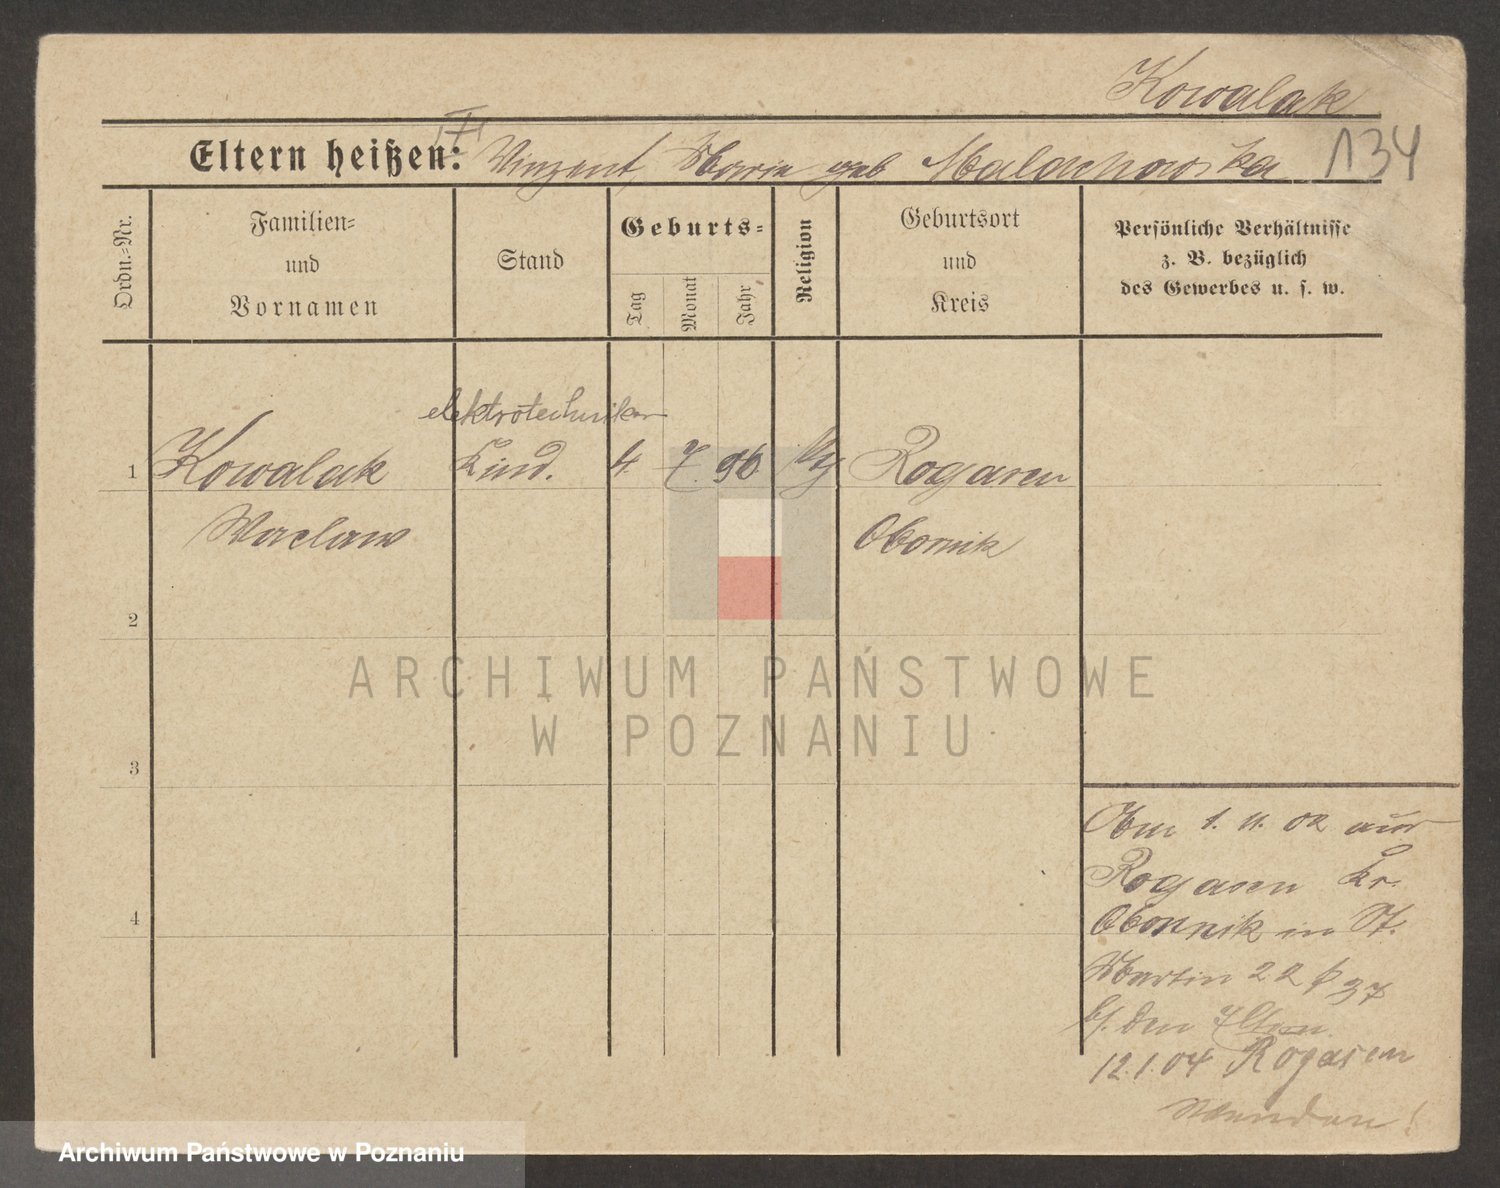 Kowalak
Eltern heißen: Vinzent, Maria geb Malachowska 134
Ordn.-Nr.
Familien- und Vornamen
Stand
Geburts-
Tag
Monat
Jahr
Religion
Geburtsort und Kreis
Persönliche Verhältnisse
z. B. bezüglich
des Gewerbes u. s. w.
elektrotechniker
1 Kowalak Kind. 4. 7. 96. Rogasen
Waclaw Obornik
2
3
4
ARCHIWUM PAŃSTWOWE
W POZNANIU
Am 1. 11. 02 aus
Rogasen Kr.
Obornik in St.
Martin 22 37
b/. den Eltern
12.1.04 Rogasen
Wenden!
Archiwum Państwowe w Poznaniu